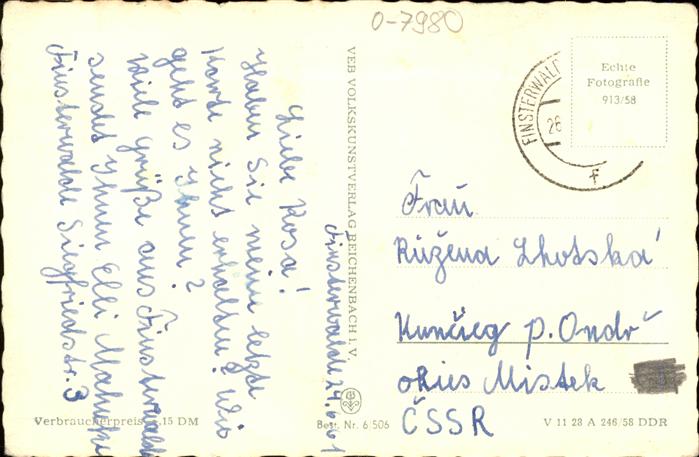 0-7980
Finsterwalde 24.6.61
Liebe Rosa!
Haben Sie meine letzte
Karte nicht erhalten? Wie
geht es Ihnen?
Viele Grüße aus Finsterwalde
sendet Ihnen Elli
Finsterwalde Siegfriedstr. 3
VEB VOLKSKUNSTVERLAG REICHENBACH I. V.
FINSTERWALD
26
f
Echte
Fotografie
913/58
Frau
Růžena Lhotská
Kunčieg p. Ondř
okies Mistek
ČSSR
Verbraucherpreis 0,15 DM
Best. Nr. 6/506
V 11 28 A 246/58 DDR